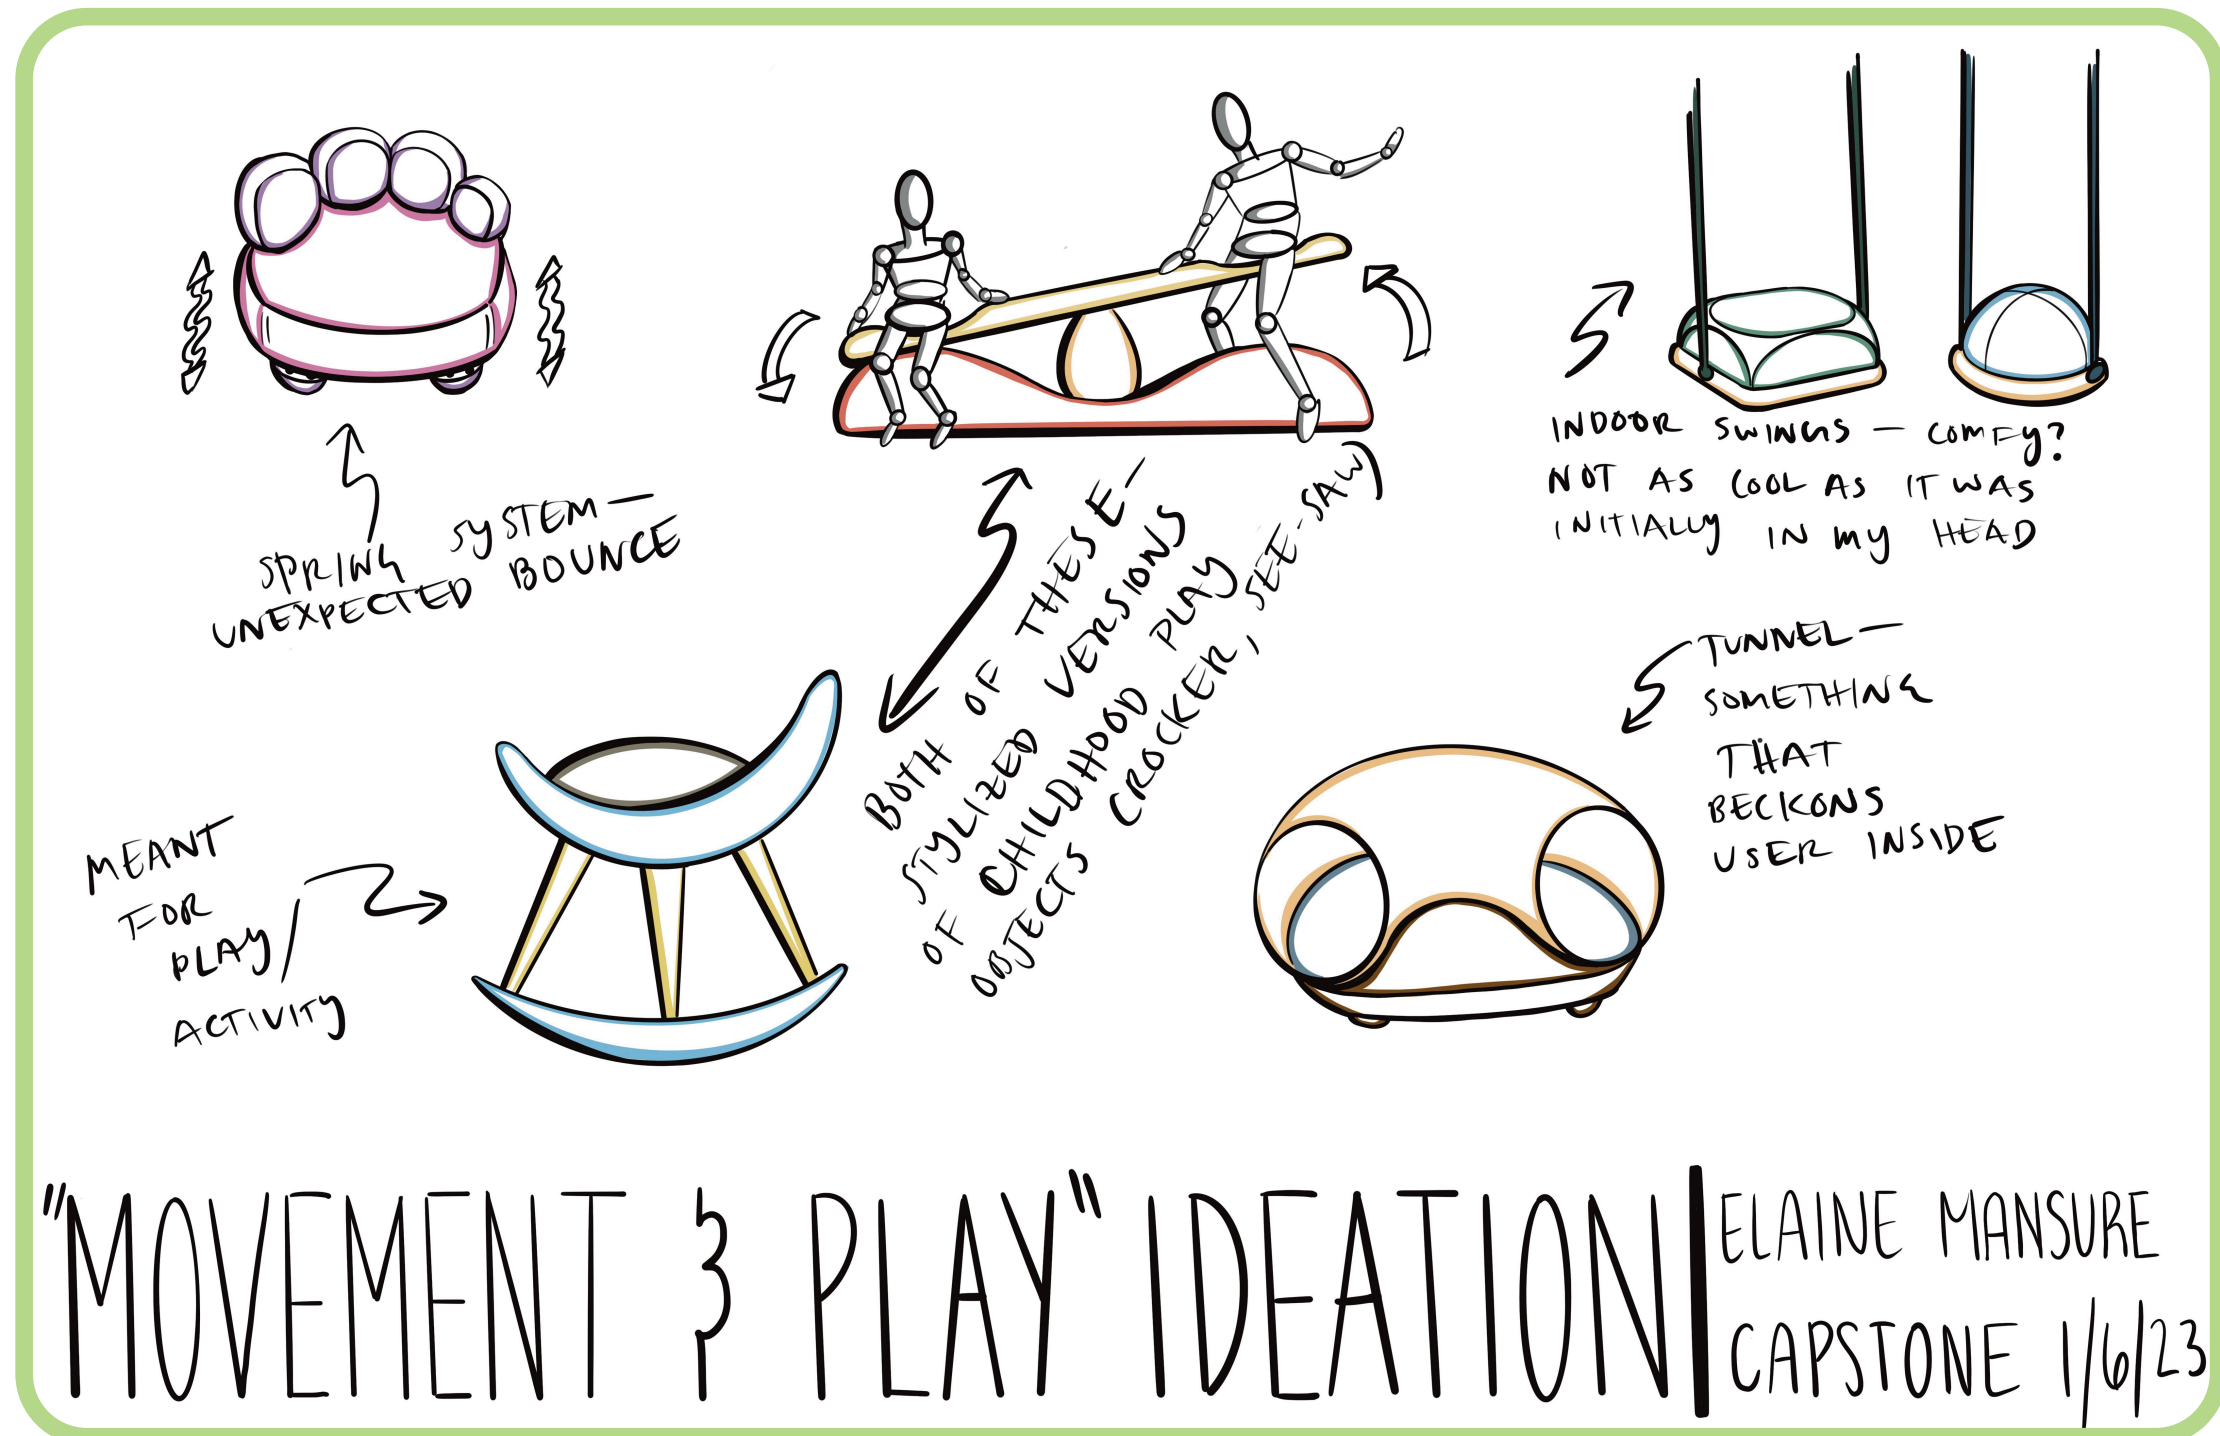 SPRING SYSTEM —
UNEXPECTED BOUNCE
BOTH OF THESE -
STYLIZED VERSIONS
OF CHILDHOOD PLAY
OBJECTS (ROCKER, SEE-SAW)
INDOOR SWINGS — COMFY?
NOT AS COOL AS IT WAS
INITIALLY IN MY HEAD
MEANT
FOR
PLAY/
ACTIVITY
TUNNEL —
SOMETHING
THAT
BECKONS
USER INSIDE
"MOVEMENT & PLAY" IDEATION
ELAINE MANSURE
CAPSTONE 1/6/23